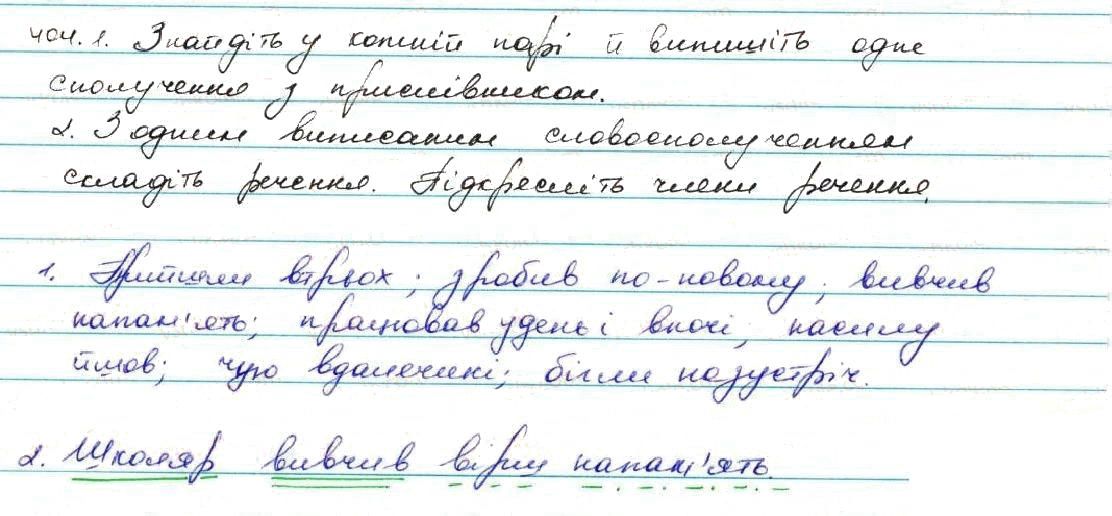 1. Знайдіть у кожній парі й випишіть одне
сполучення з прислівником.
2. З одним виписаним словосполученням
складіть речення. Підкресліть члени речення.
1. Прийшли втрьох; зробив по-новому; вивчив
напам'ять; працював удень і вночі; насилу
йшов; чую вдалечині; бігли назустріч.
2. Школяр вивчив вірш напам'ять.